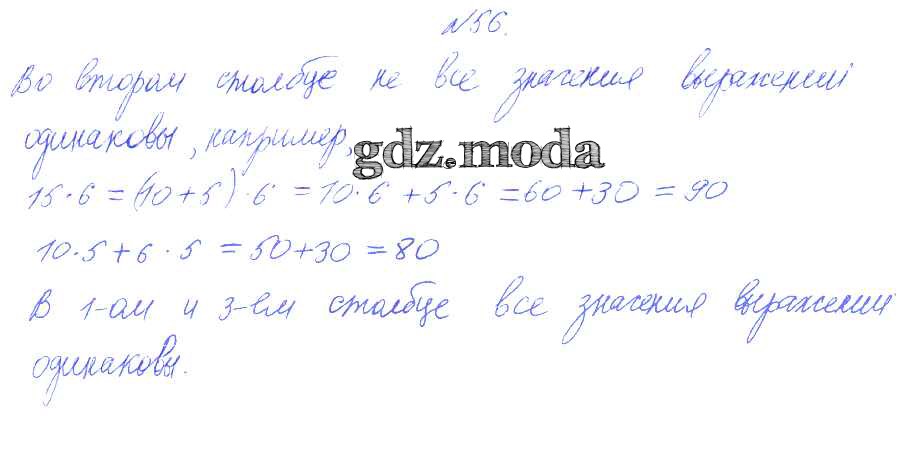 №56.
Во втором столбце не все значения выражений
одинаковы, например,
gdz.moda
15·6 = (10+5)·6 = 10·6 + 5·6 = 60+30 = 90
10·5+6·5 = 50+30 = 80
В 1-ом и 3-ем столбце все значения выражений
одинаковы.